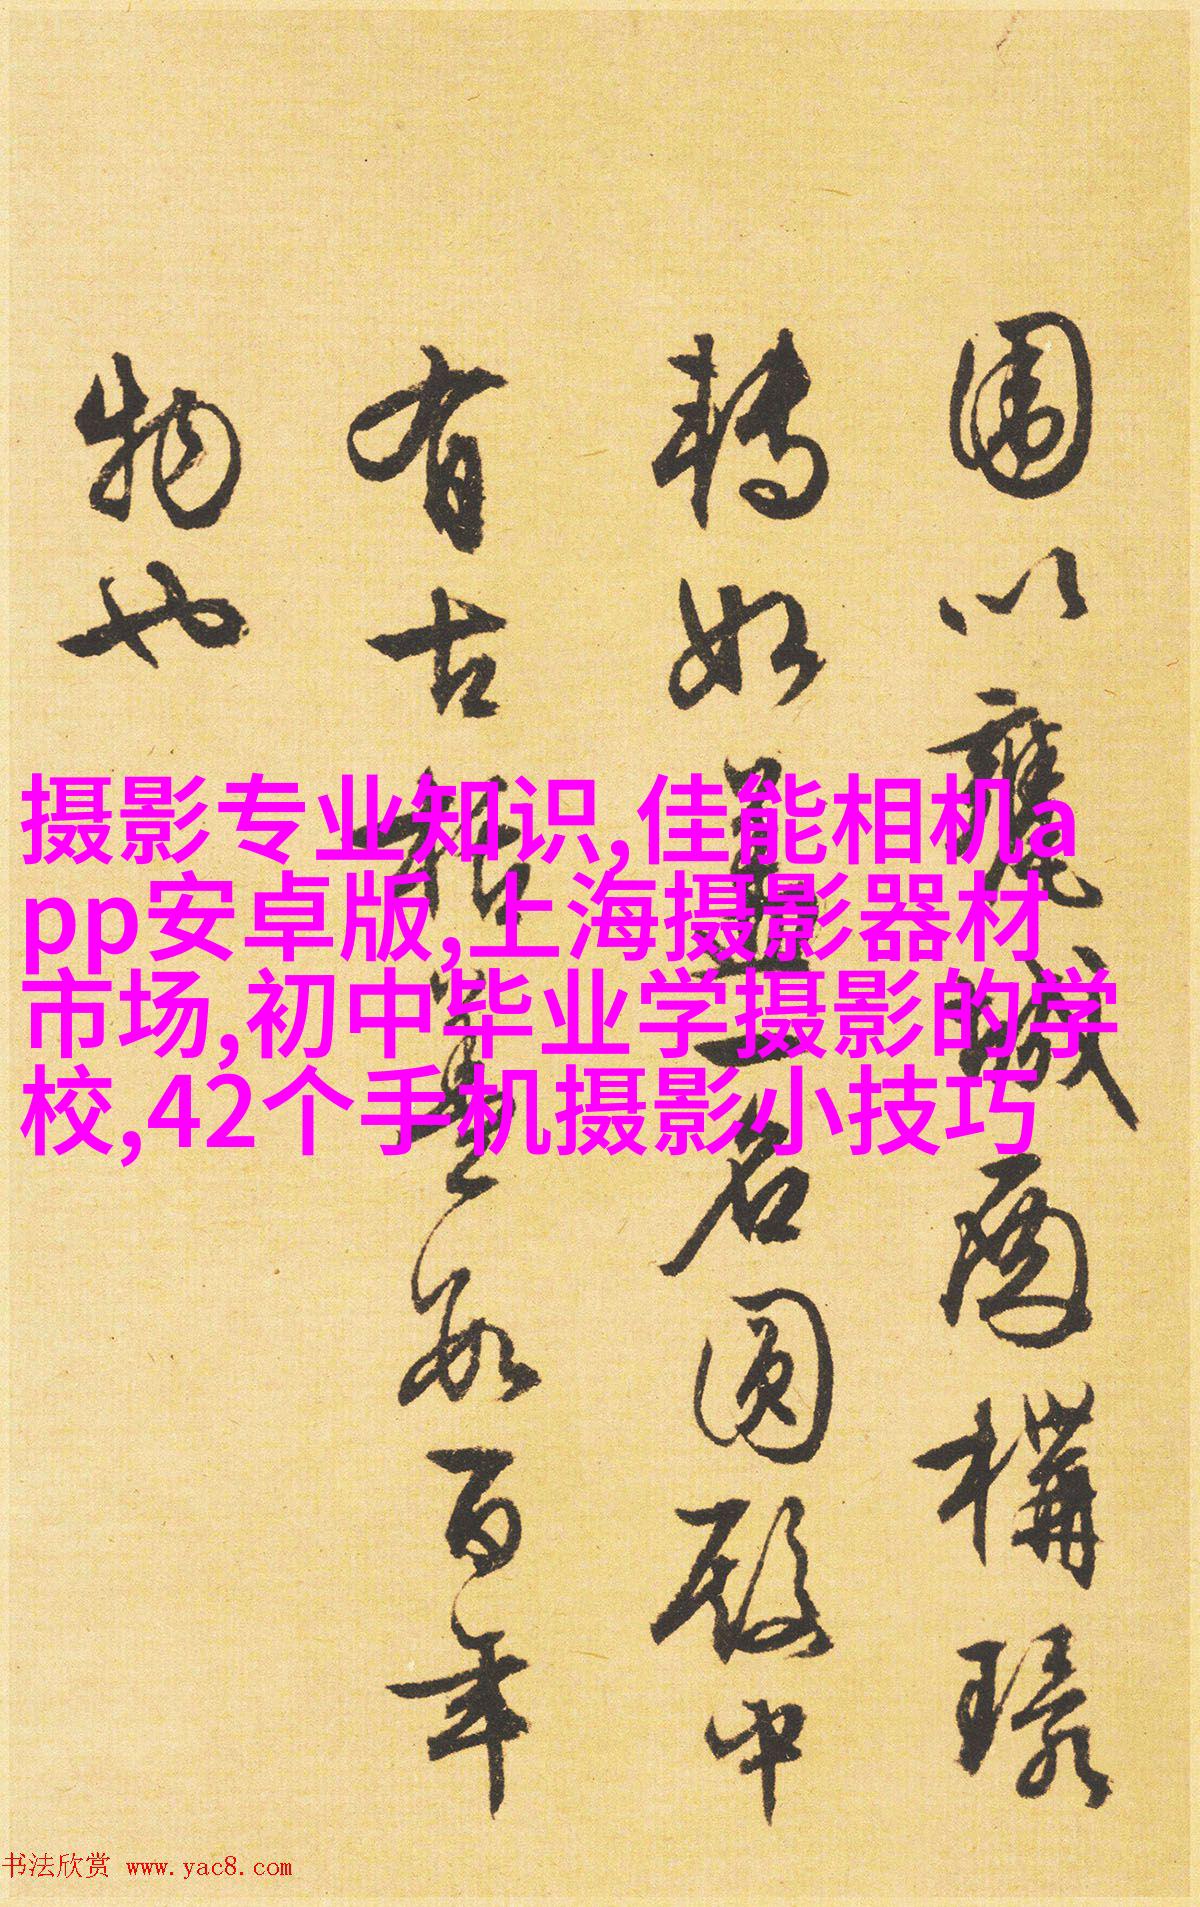 圍以甕城構環
轉如蓋一名圓殿中
有古栝蓋數百年
物也
摄影专业知识,佳能相机a
pp安卓版,上海摄影器材
市场,初中毕业学摄影的学
校,42个手机摄影小技巧
书法欣赏 www.yac8.com